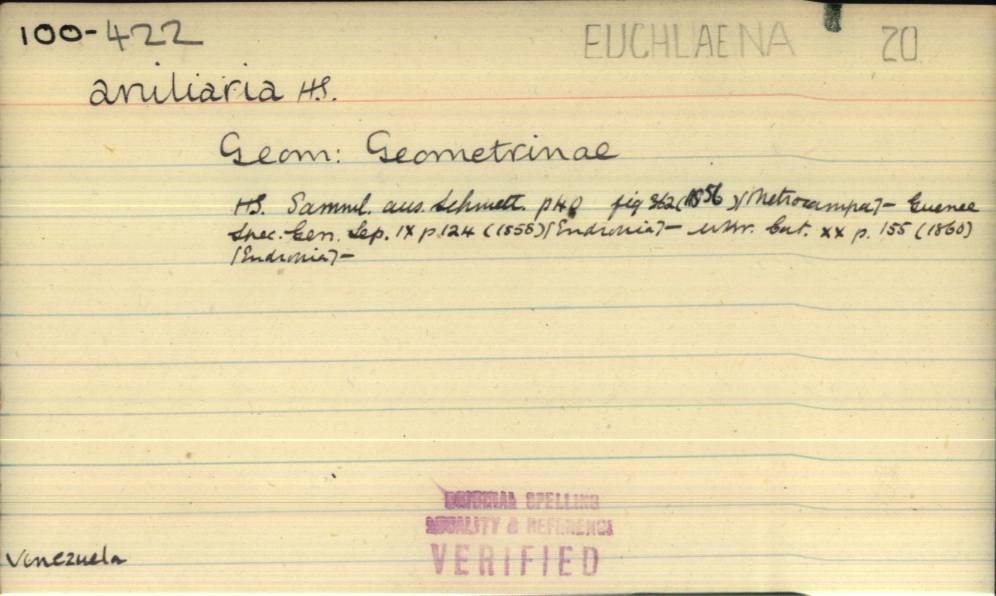 100-422 EUCHLAENA 20
aniliaria H.S.
Geom: Geometrinae
HS. Samml. aus. Schmett. p40 fig 362 (1856) [Metrocampa] - Guenee
Spec. Gen. Lep. IX p.124 (1858) [Endropia] - Wkr. Cat. xx p. 155 (1860)
[Endropia] -
ORIGINAL SPELLING
LOCALITY & REFERENCE
VERIFIED
Venezuela